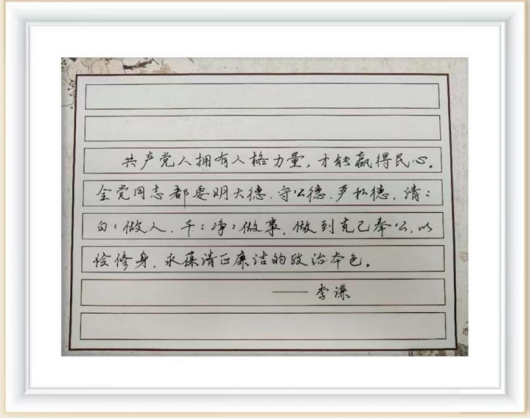 共产党人拥有人格力量，才能赢得民心。
全党同志都要明大德、守公德、严私德，清：
白：做人、干：净：做事，做到克己奉公、以
俭修身，永葆清正廉洁的政治本色。
——李谦